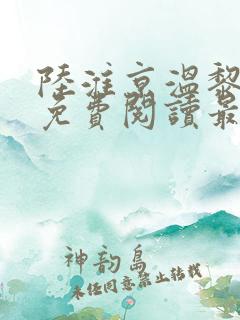 陸淮京溫黎
免費閱讀最
神韵島
未任同意禁止转载